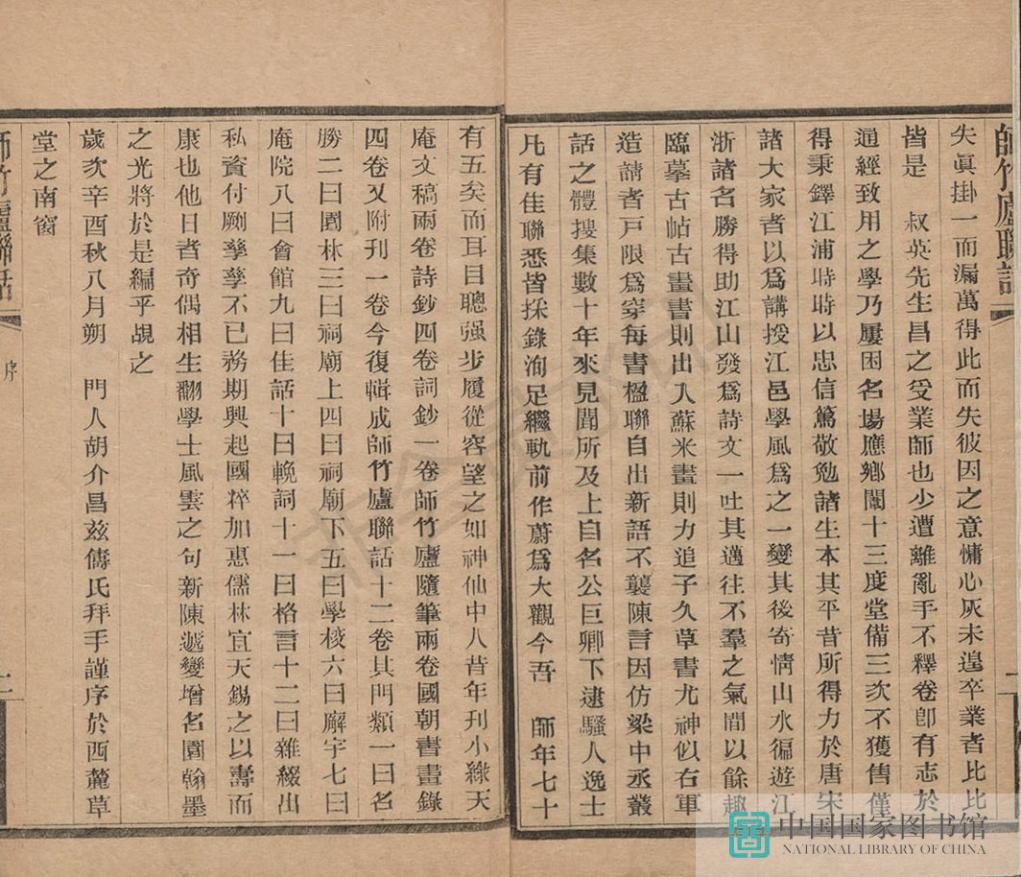 師竹廬聯話
失眞掛一而漏萬得此而失彼因之意慵心灰未遑卒業者比比
皆是　叔英先生昌之受業師也少遭離亂手不釋卷卽有志於
通經致用之學乃屢困名場應鄉闈十三度堂備三次不獲售僅
得秉鐸江浦時時以忠信篤敬勉諸生本其平昔所得力於唐宋
諸大家者以爲講授江邑學風爲之一變其後寄情山水徧遊江
浙諸名勝得助江山發爲詩文一吐其邁往不羣之氣間以餘趣
臨摹古帖古畫書則出入蘇米畫則力追子久草書尤神似右軍
造請者戶限爲穿每書楹聯自出新語不襲陳言因仿梁中丞叢
話之體搜集數十年來見聞所及上自名公巨卿下逮騷人逸士
凡有佳聯悉皆採錄洵足繼軌前作蔚爲大觀今吾　師年七十
有五矣而耳目聰强步履從容望之如神仙中人昔年刊小綠天
庵文稿兩卷詩鈔四卷詞鈔一卷師竹廬隨筆兩卷國朝書畫錄
四卷又附刊一卷今復輯成師竹廬聯話十二卷其門類一曰名
勝二曰園林三曰祠廟上四曰祠廟下五曰學校六曰廨宇七曰
庵院八曰會館九曰佳話十曰輓詞十一曰格言十二曰雜綴出
私資付劂孳孳不已務期興起國粹加惠儒林宜天錫之以壽而
康也他日者奇偶相生翻學士風雲之句新陳遞變增名園翰墨
之光將於是編乎覘之
歲次辛酉秋八月朔　門人胡介昌玆儔氏拜手謹序於西麓草
堂之南窗
師竹廬聯話
序
二
中国国家图书馆
NATIONAL LIBRARY OF CHINA